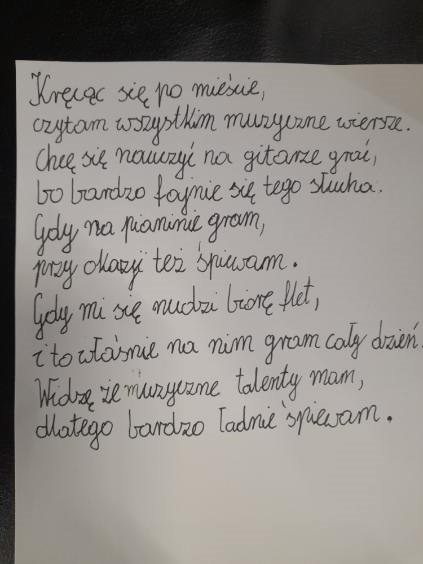 Kręcąc się po mieście,
czytam wszystkim muzyczne wiersze.
Chcę się nauczyć na gitarze grać,
bo bardzo fajnie się tego słucha.
Gdy na pianinie gram,
przy okazji też śpiewam.
Gdy mi się nudzi biorę flet,
i to właśnie na nim gram cały dzień.
Widzę że muzyczne talenty mam,
dlatego bardzo ładnie śpiewam.